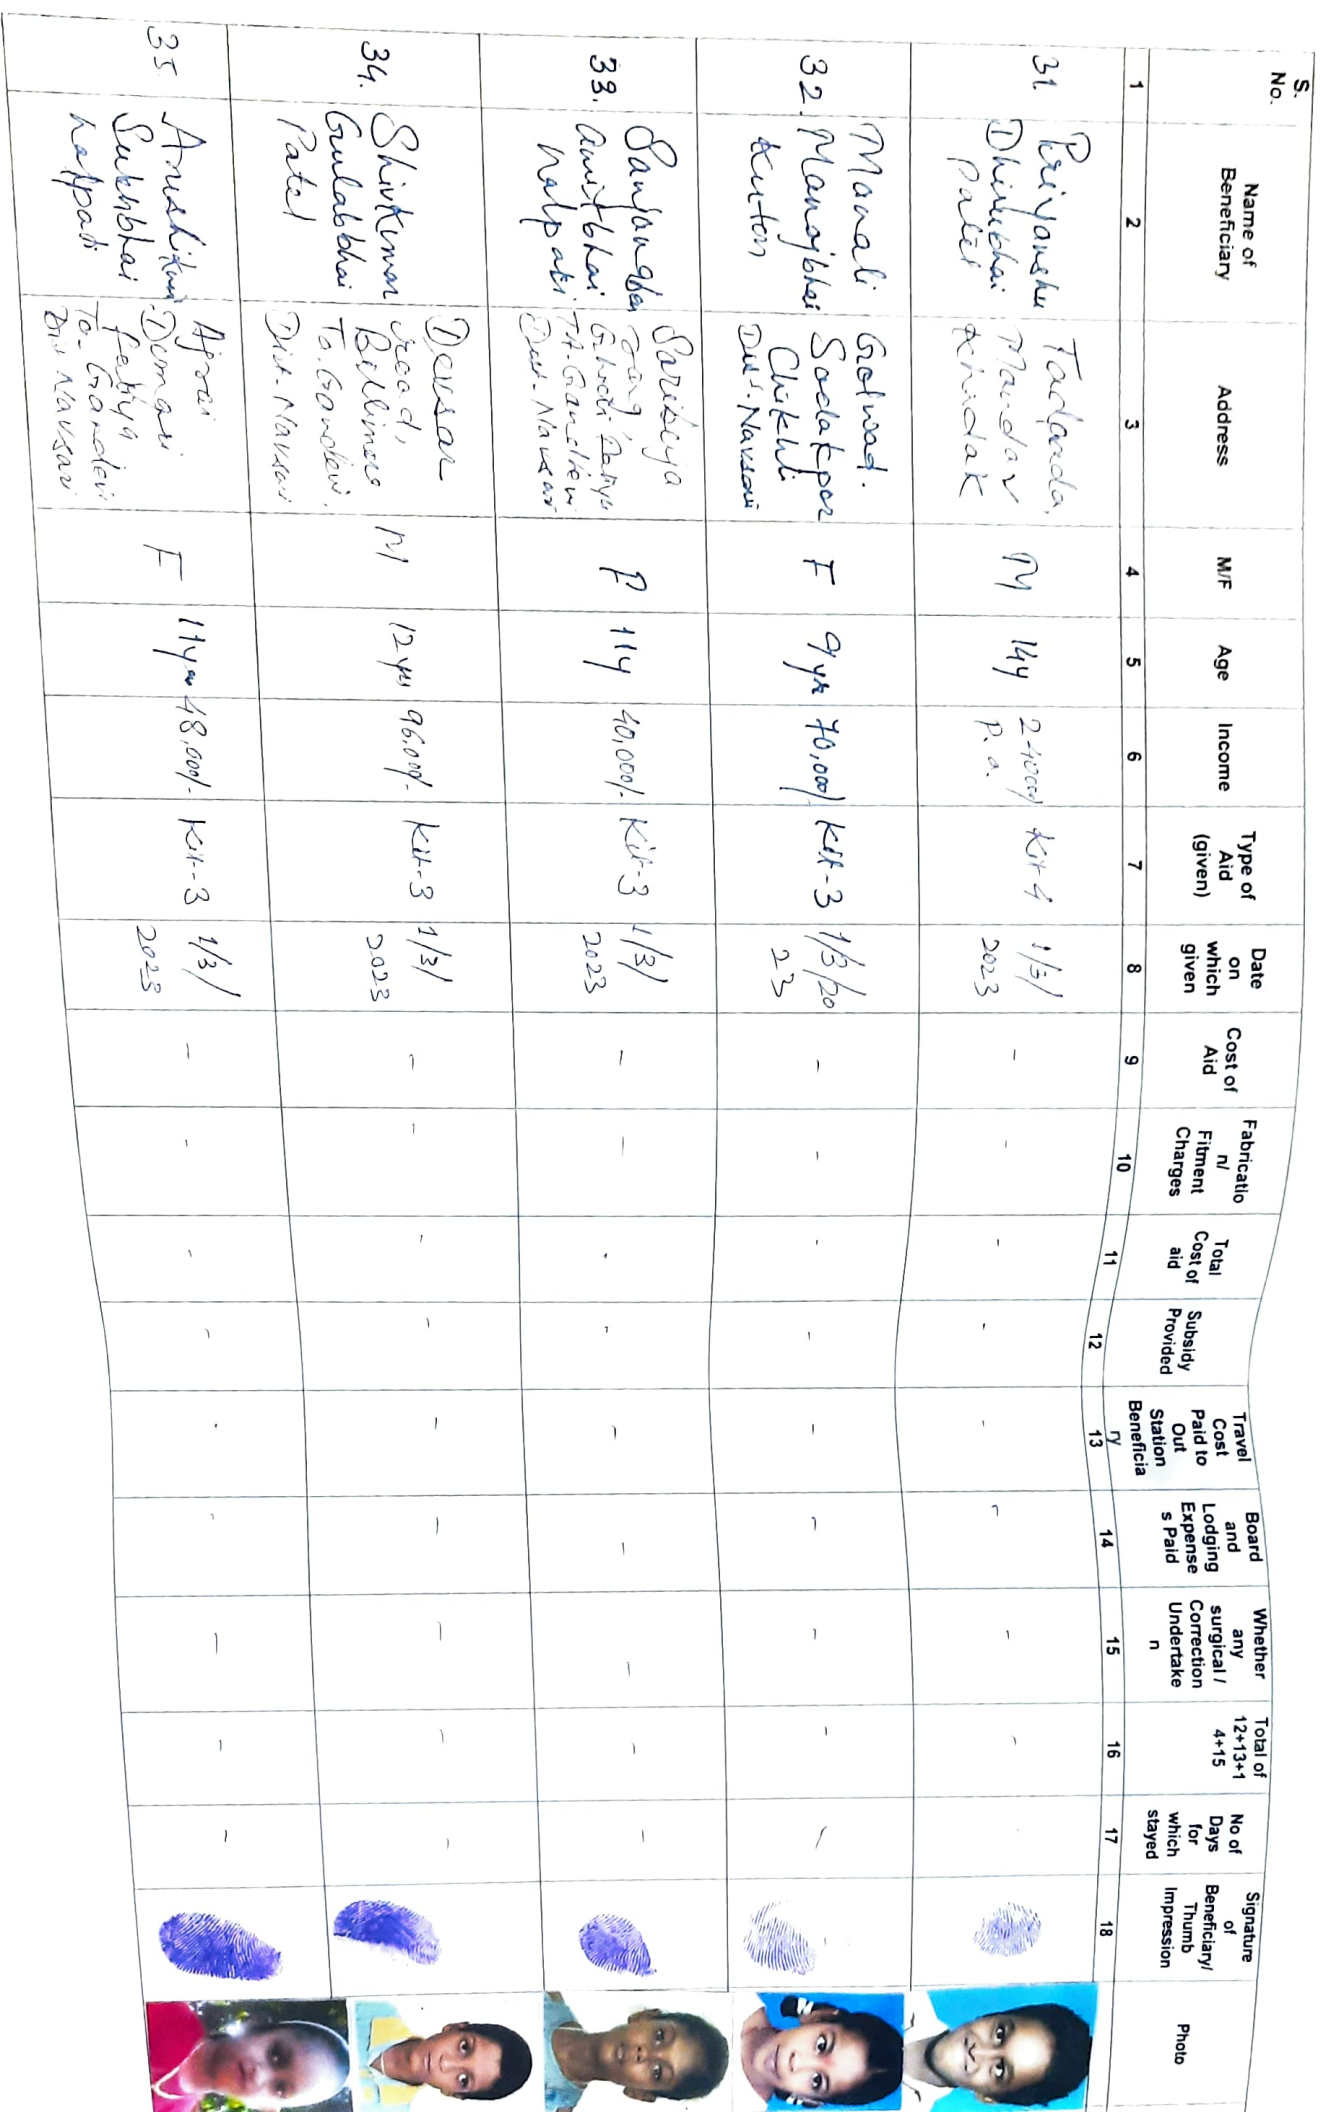 S.
No.
Name of
Beneficiary
Address
M/F
Age
Income
Type of
Aid
(given)
Date
on
which
given
Cost of
Aid
Fabricatio
n/
Fitment
Charges
Total
Cost of
aid
Subsidy
Provided
Travel
Cost
Paid to
Out
Station
Beneficia
ry
Board
and
Lodging
Expense
s Paid
Whether
any
surgical /
Correction
Undertake
n
Total of
12+13+1
4+15
No of
Days
for
which
stayed
Signature
of
Beneficiary/
Thumb
Impression
Photo
1 2 3 4 5 6 7 8 9 10 11 12 13 14 15 16 17 18
31.
Priyanshu
Dhirubhai
Patel
Tadada,
Khidak
M
14y
P. a.
Kit-4
1/3/
2023
- - - - - - - -
32.
Manali
Manojbhai
Golwad.
Sadakpor
Chikhli
Dist-Navsari
F
9yr
70,000/-
Kit-3
1/3/20
23
- - - - - - - - -
33.
Sanjanaben
amitbhai
halpati
F
11y
40,000/-
Kit-3
1/3/
2023
- - - - - - - - -
34.
Shivkumar
Gulabbhai
Patel
Devsar
road,
Bilimora
Ta. Gandevi.
Dist-Navsari
M
12 yrs
96,000/-
Kit-3
1/3/
2023
- - - - - - - - -
35.
Sukhbhai
halpati
Ajrai
faliya
Ta- Gandevi
Dist Navsari
F
11 yrs
48,000/-
Kit-3
1/3/
2023
- - - - - - - - -